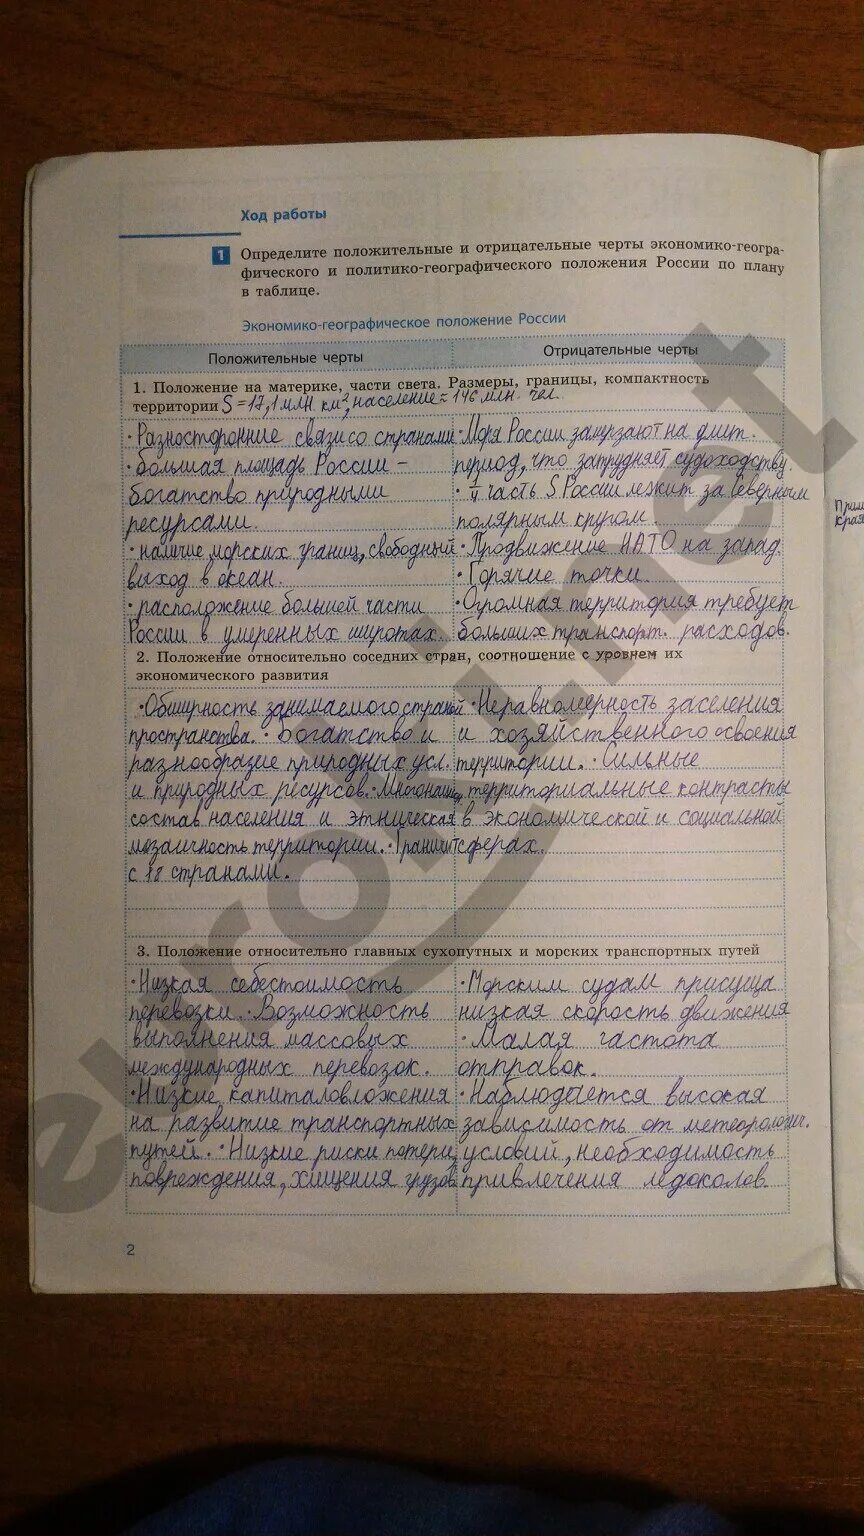 Ход работы
1 Определите положительные и отрицательные черты экономико-геогра-
фического и политико-географического положения России по плану
в таблице.
Экономико-географическое положение России
Положительные черты
Отрицательные черты
1. Положение на материке, части света. Размеры, границы, компактность
территории S = 17,1 млн км², население ≈ 146 млн. чел.
· Разносторонние связи со странами
· большая площадь России –
богатство природными
ресурсами.
· наличие морских границ, свободный
выход в океан.
· расположение большей части
России в умеренных широтах.
· Моря России замерзают на длит.
период, что затрудняет судоходству.
· часть S России лежит за Северным
полярным кругом.
· Продвижение НАТО на запад
· Горячие точки.
· Огромная территория требует
больших транспорт. расходов.
2. Положение относительно соседних стран, соотношение с уровнем их
экономического развития
· Обширность занимаемого страной
пространства. · Богатство и
разнообразие природных усл.
и природных ресурсов. · Многонац.
состав населения и этническая
мозаичность территории. · Граничит
с 18 странами.
· Неравномерность заселения
и хозяйственного освоения
территории. · Сильные
территориальные контрасты
в экономической и социальной
сферах.
3. Положение относительно главных сухопутных и морских транспортных путей
· Низкая себестоимость
перевозки. · Возможность
выполнения массовых
международных перевозок.
· Низкие капиталовложения
на развитие транспортных
путей. · Низкие риски потери,
повреждения, хищения грузов
· Морским судам присуща
низкая скорость движения
· Малая частота
отправок.
· Наблюдается высокая
зависимость от метеорологич.
условий, необходимость
привлечения ледоколов.
2
Прим
края
euroki.net